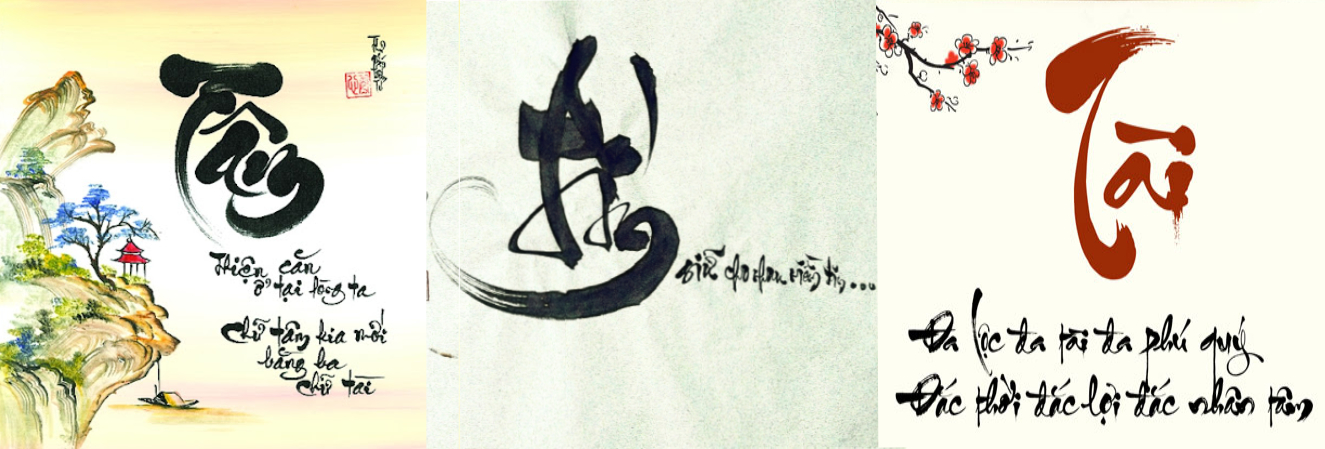 Tâm
Thiện căn
ở tại lòng ta
Chữ tâm kia mới
bằng ba
chữ tài
giữ cho nhau niềm tin...
Tài
Đa lộc đa tài đa phú quý
Đắc thời đắc lợi đắc nhân tâm